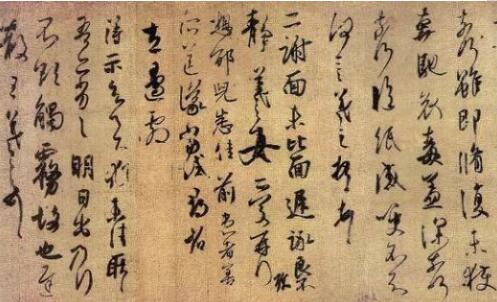 奈何雖即脩復未獲
奔馳哀毒益深奈何
奈何臨紙感哽不知
何言羲之頓首頓首
二謝面未比面遲詠良不
靜羲之女愛再拜
想邰兒悉佳前患者善
所送議當試尋省
左邊劇
得示知足下猶未佳耿耿
吾亦劣劣明日出乃行
不欲觸霧故也遲
散王羲之頓首